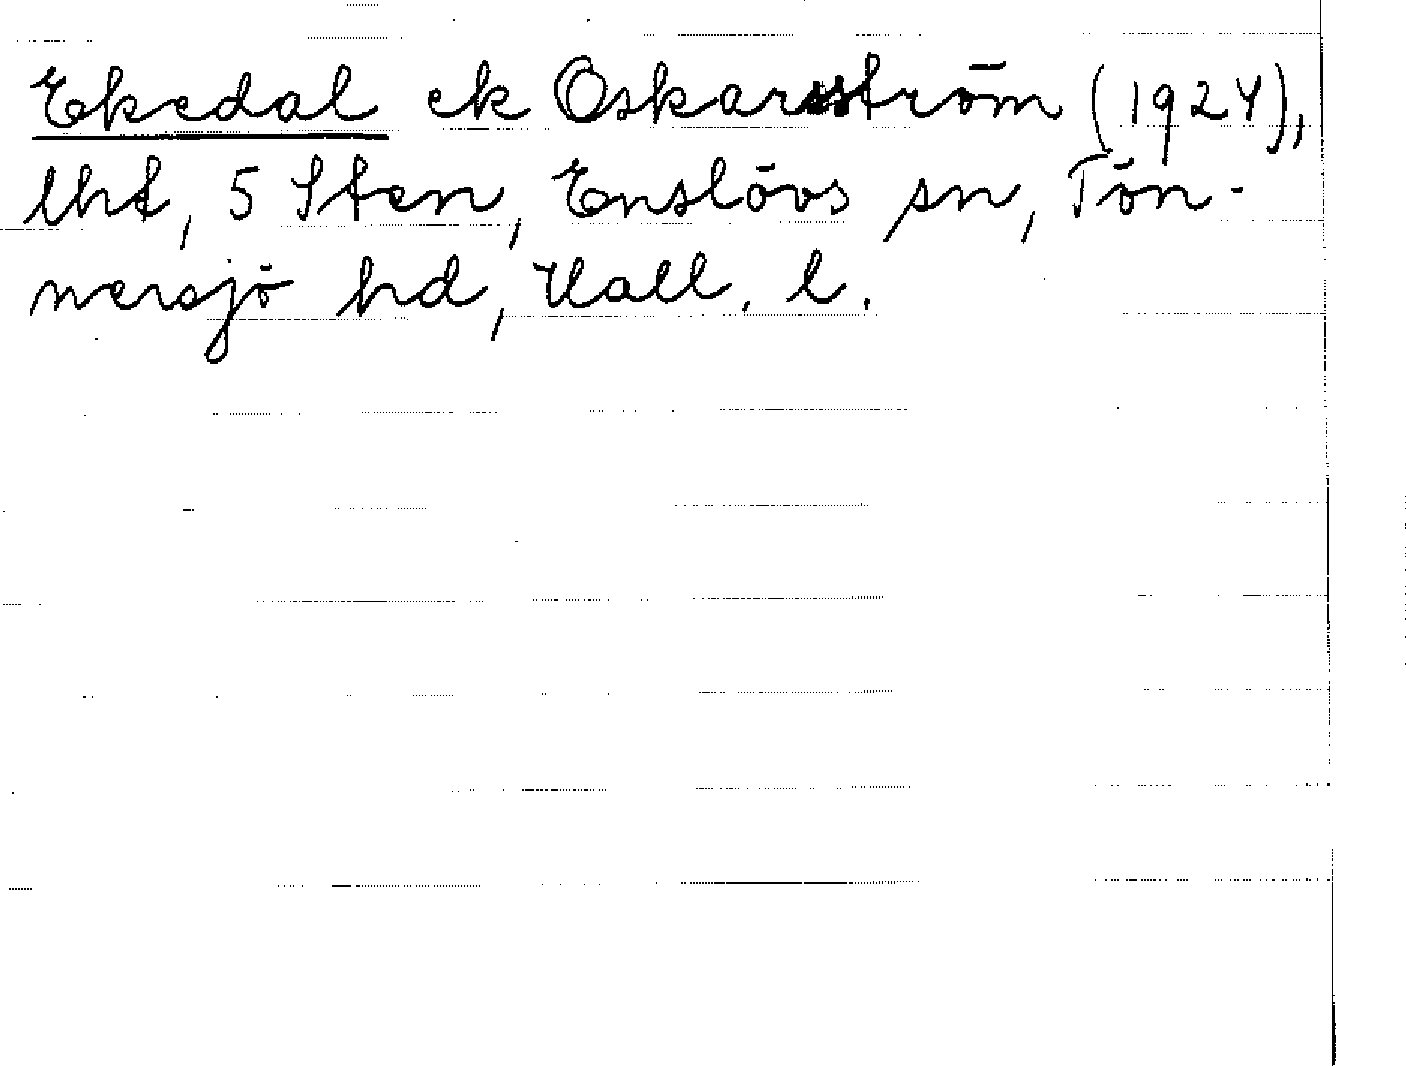 Ekedal ek Oskarsström (1924),
lht, 5 Sten, Enslövs sn, Tön-
nersjö hd, Hall. l.